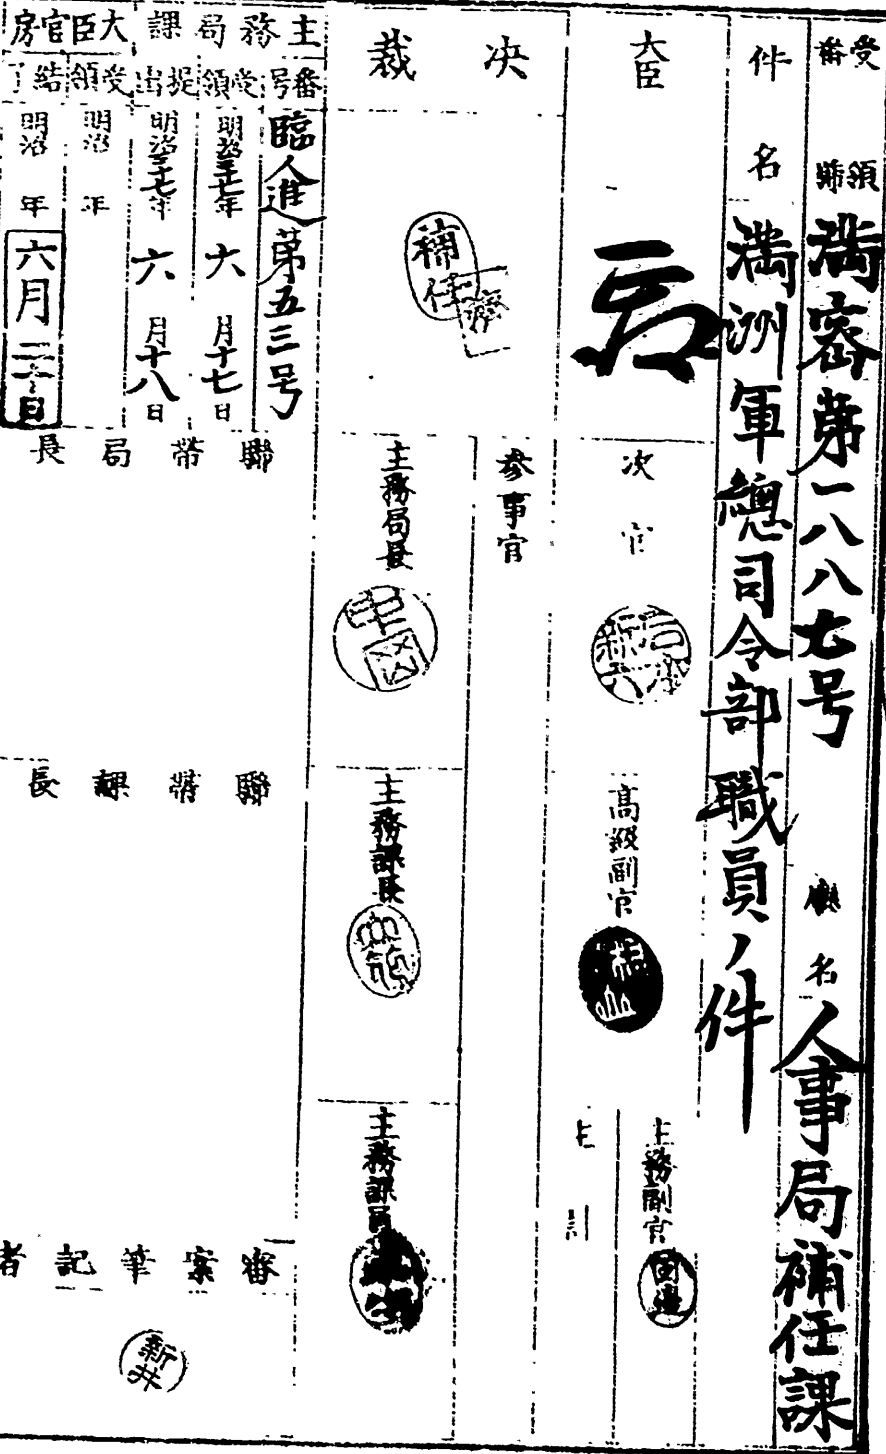 受領番號
満密第一八八七号
廳名
人事局補任課
件名
満洲軍總司令部職員ノ件
大臣
次官
高級副官
主務副官
田邊
決裁
補任
濟
参事官
主務局長
主務課長
主務課員
主務局課
番号
臨人進第五三号
受領
明治三十七年六月十七日
提出
明治三十七年六月十八日
大臣官房
受領
明治 年
結了
明治 年
六月二十日
聯帯局長
聯帯課長
審案筆記者
新井